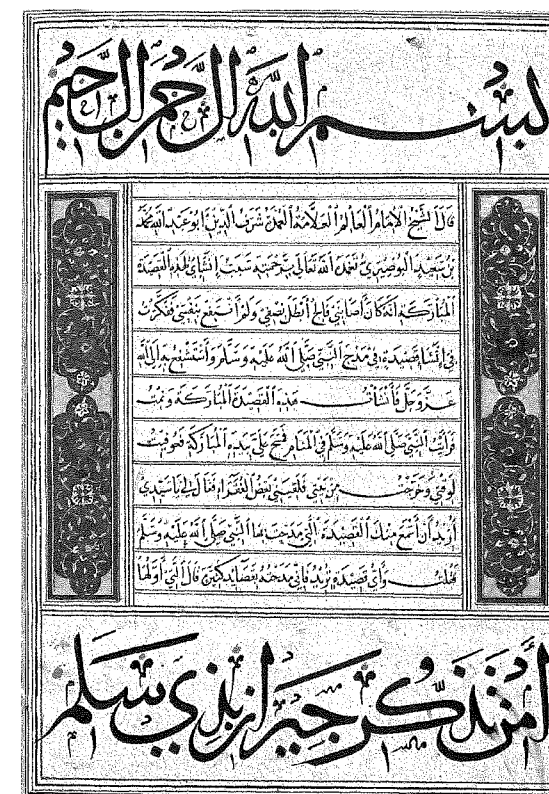 بسم الله الرحمن الرحيم
قال الشيخ الإمام العالم العلامة العمدة شرف الدين أبو عبد الله محمد
بن سعيد البوصيري تغمده الله تعالى برحمته سبب إنشاي لهذه القصيدة
المباركة أنه كان أصابني فالج أبطل نصفي ولم أنتفع بنفسي ففكرت
في إنشا قصيدة في مدح النبي صلى الله عليه وسلم وأستشفع به إلى الله
عز وجل فأنشأت هذه القصيدة المباركة ونمت
فرأيت النبي صلى الله عليه وسلم في المنام فمسح علي بيده المباركة فعوفيت
لوقتي وخرجت من بيتي فلقيني بعض الفقراء فقال لي يا سيدي
أريد أن أسمع منك القصيدة التي مدحت بها النبي صلى الله عليه وسلم
فقلت وأي قصيدة تريد فإني مدحته بقصائد كثيرة قال التي أولها
أمن تذكر جيران بذي سلم